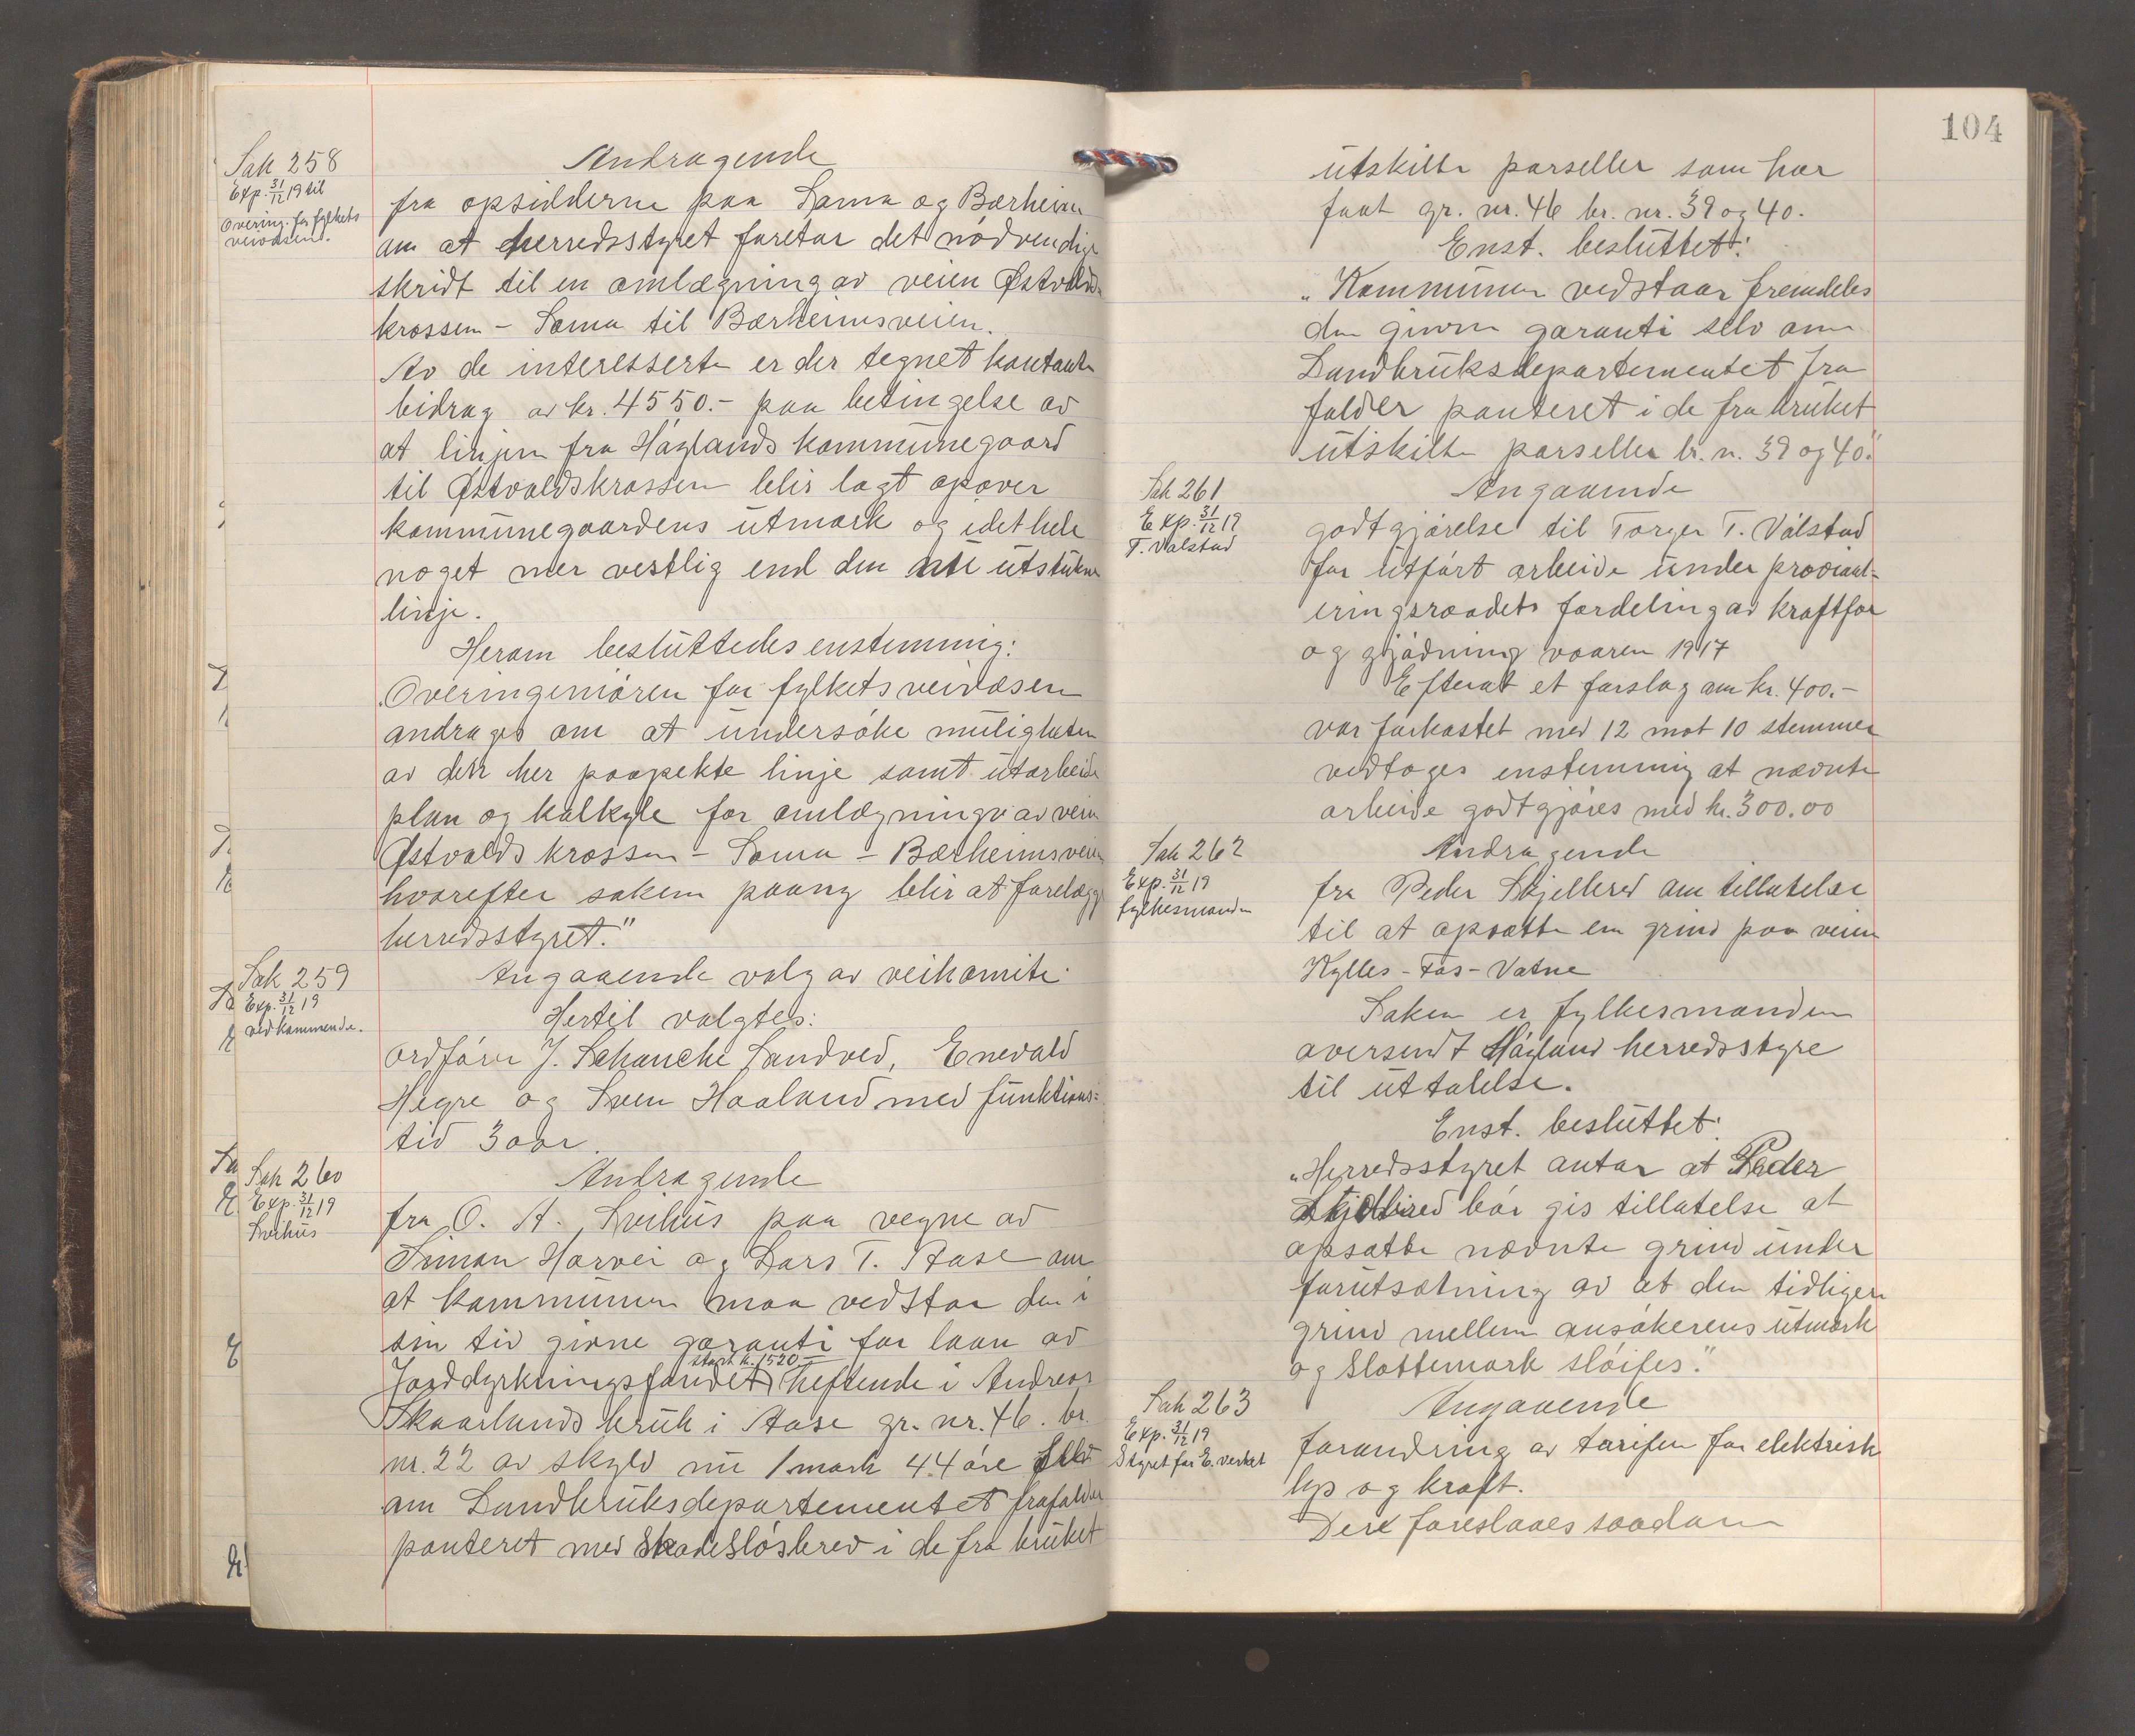 Sak 258
Exp. 31/12 19 til
Overing. for fylkets
veivæsend.
Andragende
fra opsidderne paa Soma og Bærheim
om at herredsstyret foretar det nødvendige
skridt til en omlægning av veien Østvolds
krossen - Soma til Bærheimsveien.
Av de interesserte er der tegnet kontante
bidrag av kr. 4550.- paa betingelse av
at linjen fra Høylands kommunegaard
til Østvoldskrossen blir lagt opover
kommunegaardens utmark og idethele
noget mer vestlig end den nu utstukne
linje.
Herom besluttedes enstemmig:
„Overingeniøren for fylkets veivæsen
andrages om at undersøke muligheten
av den her paapekte linje samt utarbeide
plan og kalkyle for omlægning av veien
Østvolds krossen - Soma - Bærheimsveien
hvorefter saken paany blir at forelægge
herredsstyret."
Sak 259
Exp. 31/12 19
vedkommende.
Angaaende valg av veikomite.
Hertil valgtes:
Ordfører J. Schancke Sandved, Enevald
Hegre og Sven Haaland med funktions=
tid 3 aar.
Sak 260
Exp. 31/12 19
Svihus
Andragende
fra O. A. Svihus paa vegne av
Simon Harvei og Lars T. Aase om
at kommunen maa vedstaa den i
sin tid givne garanti for laan av
stort k. 1520 —
Jorddyrkningsfondet heftende i Andreas
Skaarlands bruk i Aase gr. nr. 46. br.
nr. 22 av skyld nu 1 mark 44 øre selv
om Landbruksdepartementet frafalder
panteret med Skadesløsbrev i de fra bruket
104
utskilte parseller som har
faat gr. nr. 46 br. nr. 39 og 40.
Enst. besluttet:
„Kommunen vedstaar fremdeles
den givne garanti selv om
Landbruksdepartementet fra
falder panteret i de fra bruket
utskilte parseller br. n. 39 og 40."
Sak 261
Exp. 31/12 19
T. Válstad
Angaaende
godtgjørelse til Torger T. Válstad
for utført arbeide under proviant-
eringsraadets fordeling av kraftfor
og gjødning vaaren 1917
Efterat et forslag om kr. 400.-
var forkastet med 12 mot 10 stemmer
vedtoges enstemmig at nævnte
arbeide godtgjøres med kr. 300.00
Sak 262
Exp. 31/12 19
fylkesmanden
Andragende
fra Peder Skjellerud om tillatelse
til at opsætte en grind paa veien
Kylles - Fos - Vatne
Saken er fylkesmanden
oversendt Høyland herredsstyre
til uttalelse.
Enst. besluttet:
„Herredsstyret antar at Peder
bør gis tillatelse at
opsætte nævnte grind under
forutsætning av at den tidligere
grind mellem ansøkerens utmark
og Slottemark sløifes."
Sak 263
Exp. 31/12 19
Styret for E. verket
Angaaende
forandring av tarifen for elektrisk
lys og kraft.
Der foreslaaes saadan